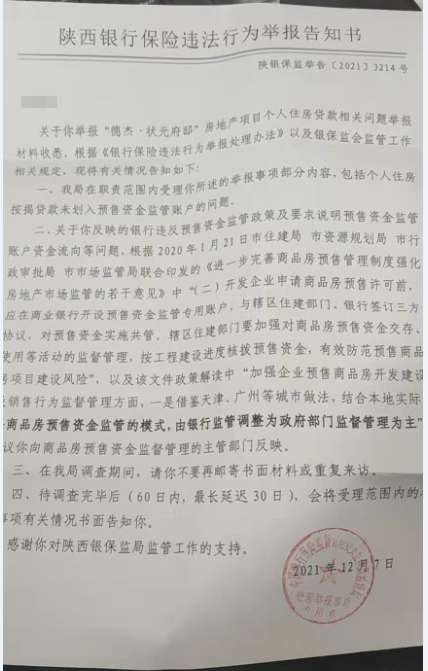 陕西银行保险违法行为举报告知书
陕银保监举告〔2021〕3214号
关于你举报“德杰·状元府邸”房地产项目个人住房贷款相关问题举报
材料收悉，根据《银行保险违法行为举报处理办法》以及银保监会监管工作
相关规定，现将有关情况告知如下：
一、我局在职责范围内受理你所述的举报事项部分内容，包括个人住房
按揭贷款未划入预售资金监管账户的问题。
二、关于你反映的银行违反预售资金监管政策及要求说明预售资金监管
账户资金流向等问题，根据2020年1月21日市住建局 市资源规划局 市行
政审批局 市市场监管局联合印发的《进一步完善商品房预售管理制度强化
房地产市场监管的若干意见》中“（二）开发企业申请商品房预售许可前，
应在商业银行开设预售资金监管专用账户，与辖区住建部门、银行签订三方
协议，对预售资金实施共管、辖区住建部门要加强对商品房预售资金交存、
使用等活动的监督管理，按工程建设进度核拨预售资金，有效防范预售商品
房项目建设风险”，以及该文件政策解读中“加强企业预售商品房开发建设
销售行为监督管理方面，一是借鉴天津、广州等城市做法，结合本地实际
商品房预售资金监管的模式，由银行监管调整为政府部门监督管理为主”
议你向商品房预售资金监督管理的主管部门反映。
三、在我局调查期间，请你不要再邮寄书面材料或重复来访。
四、待调查完毕后（60日内，最长延迟30日），会将受理范围内的
事项有关情况书面告知你。
感谢你对陕西银保监局监管工作的支持。
2021年12月7日